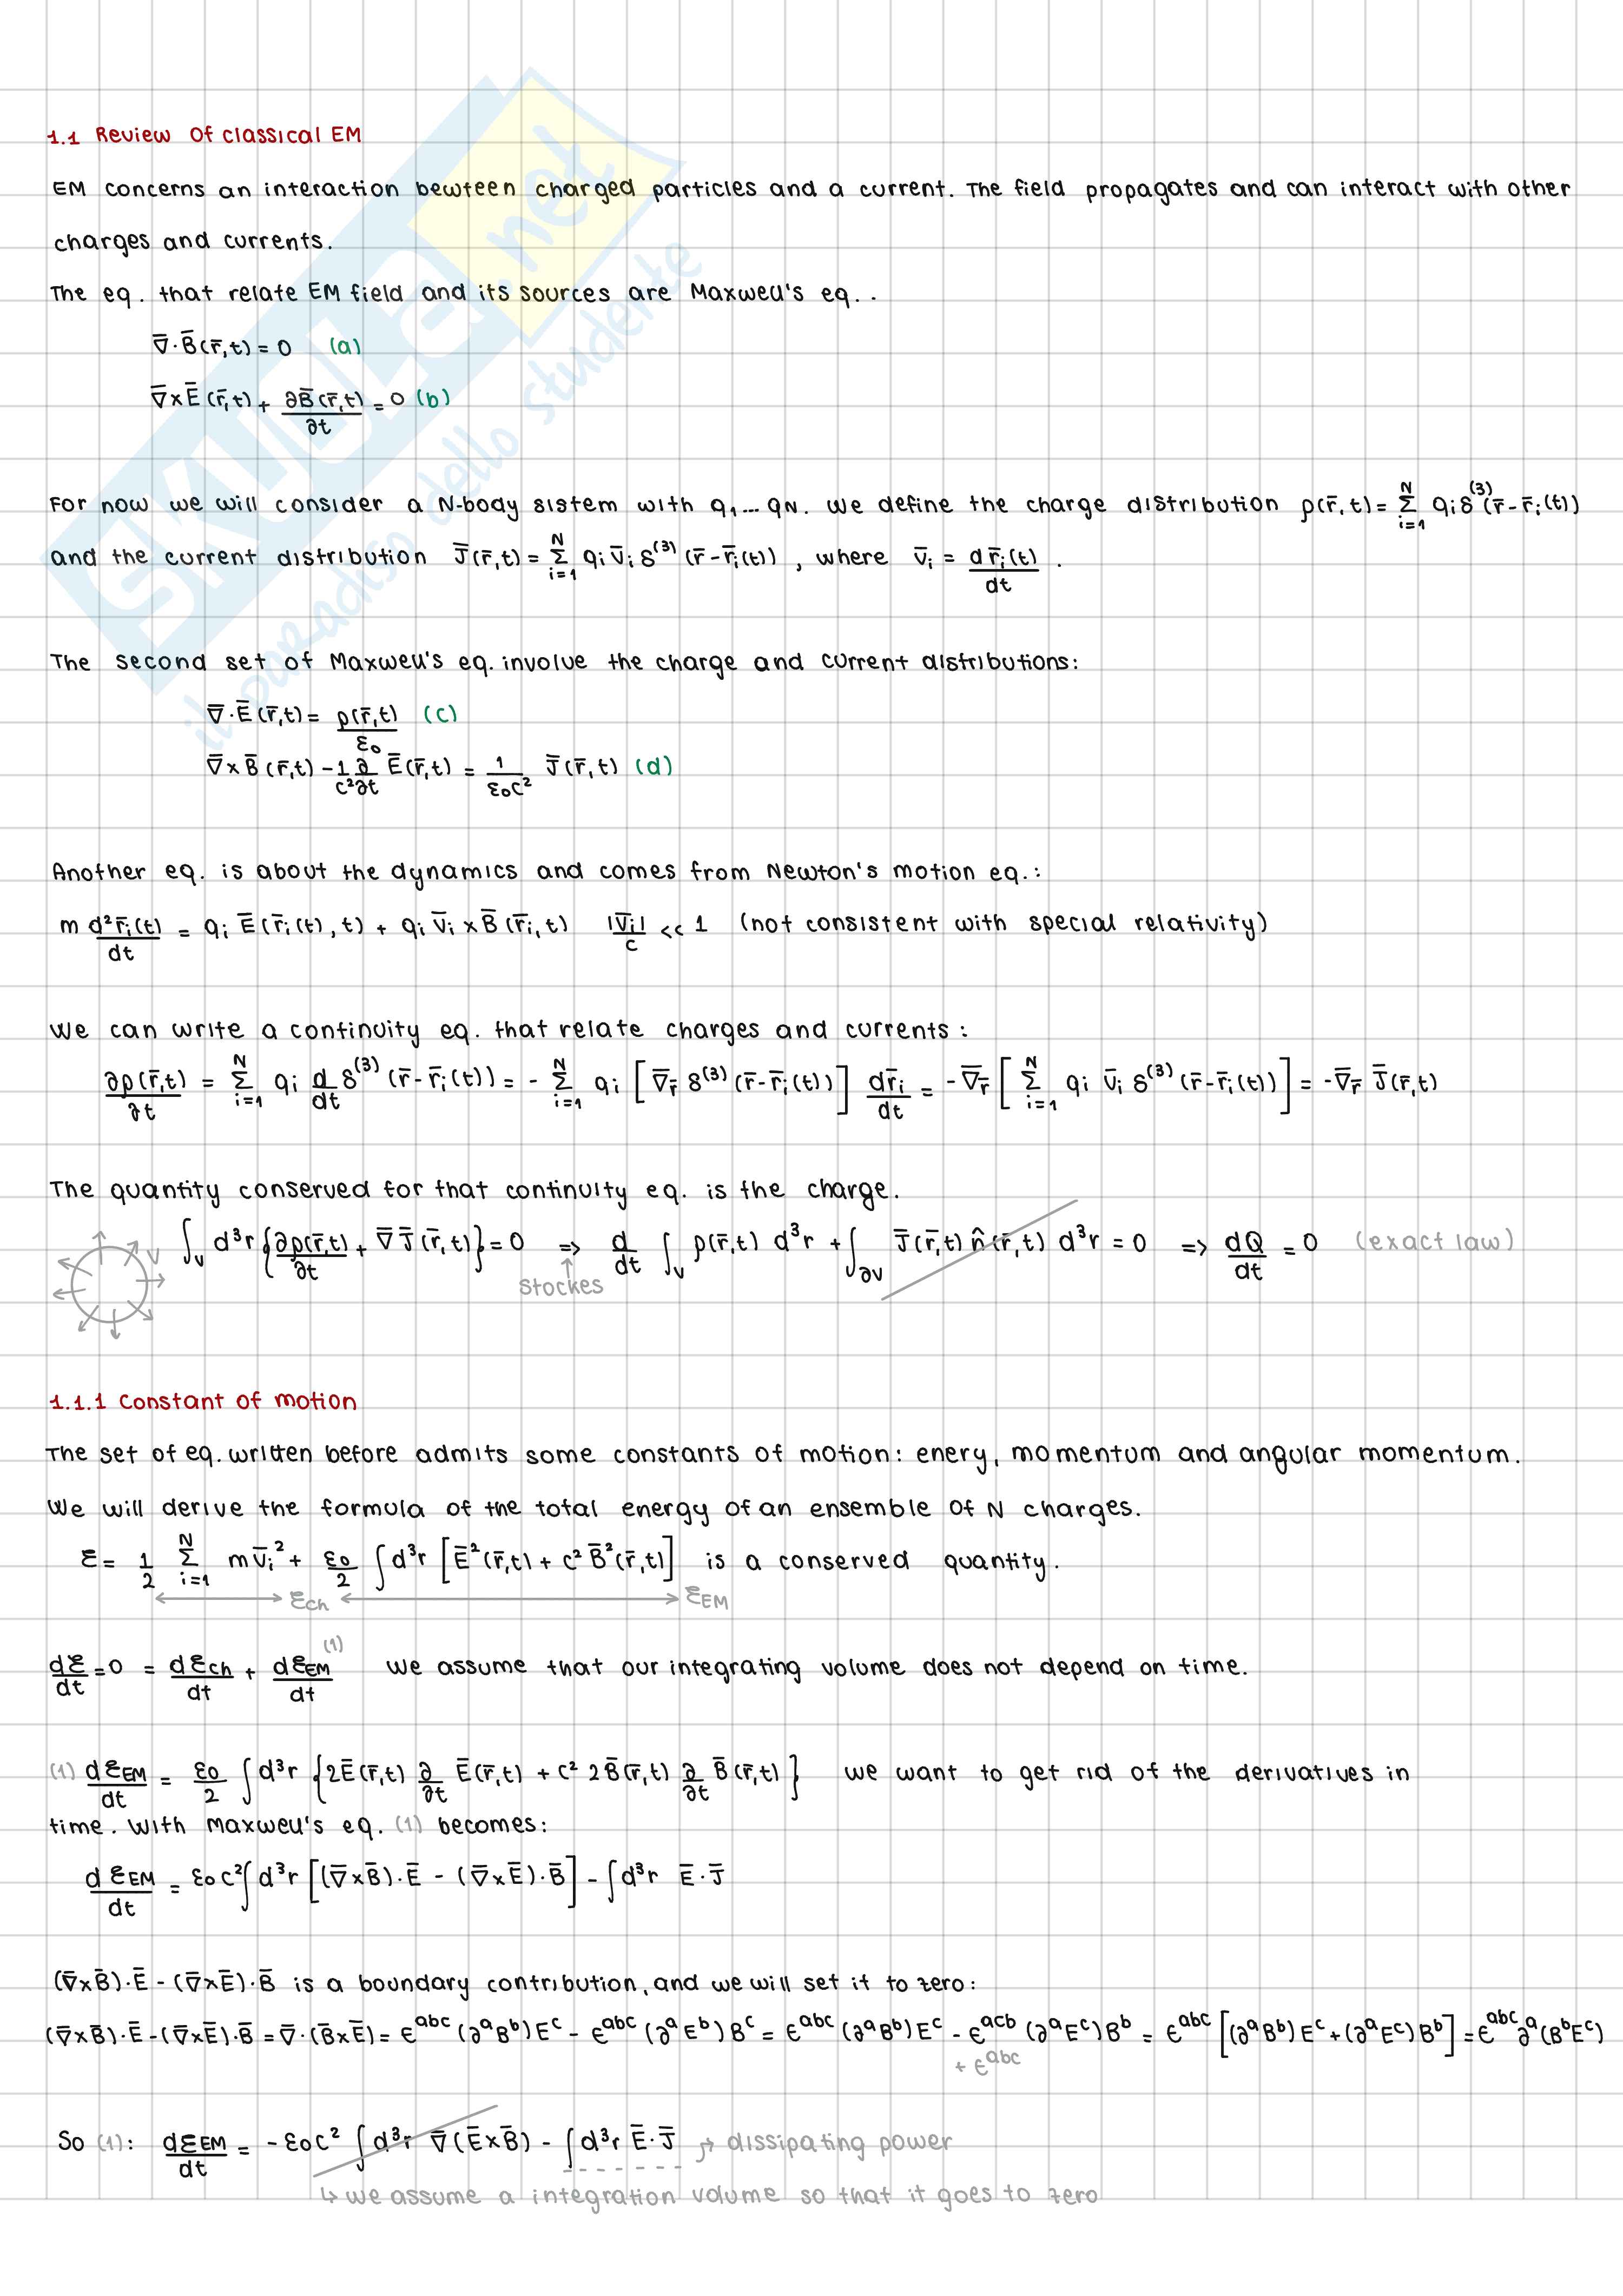 1.1 Review Of classical EM
EM concerns an interaction bewteen charged particles and a current. The field propagates and can interact with other
charges and currents.
The eq. that relate EM field and its sources are Maxwell's eq..
∇̅·B̅(r̅,t) = 0 (a)
∇̅×E̅(r̅,t) + ∂B̅(r̅,t)/∂t = 0 (b)
For now we will consider a N-body sistem with q₁...qN. We define the charge distribution ρ(r̅,t) = Σ_{i=1}^{N} qᵢ δ⁽³⁾(r̅-r̅ᵢ(t))
and the current distribution J̅(r̅,t) = Σ_{i=1}^{N} qᵢ v̅ᵢ δ⁽³⁾(r̅-r̅ᵢ(t)), where v̅ᵢ = dr̅ᵢ(t)/dt.
The second set of Maxwell's eq. involve the charge and current distributions:
∇̅·E̅(r̅,t) = ρ(r̅,t)/ε₀ (c)
∇̅×B̅(r̅,t) - 1/c² ∂/∂t E̅(r̅,t) = 1/(ε₀c²) J̅(r̅,t) (d)
Another eq. is about the dynamics and comes from Newton's motion eq.:
m d²r̅ᵢ(t)/dt = qᵢ E̅(r̅ᵢ(t),t) + qᵢ v̅ᵢ × B̅(r̅ᵢ,t) |v̅ᵢ|/c << 1 (not consistent with special relativity)
We can write a continuity eq. that relate charges and currents:
∂ρ(r̅,t)/∂t = Σ_{i=1}^{N} qᵢ d/dt δ⁽³⁾(r̅-r̅ᵢ(t)) = - Σ_{i=1}^{N} qᵢ [∇̅_r̅ δ⁽³⁾(r̅-r̅ᵢ(t))] dr̅ᵢ/dt = -∇̅_r̅ [Σ_{i=1}^{N} qᵢ v̅ᵢ δ⁽³⁾(r̅-r̅ᵢ(t))] = -∇̅_r̅ J̅(r̅,t)
The quantity conserved for that continuity eq. is the charge.
V ∫_V d³r {∂ρ(r̅,t)/∂t + ∇̅ J̅(r̅,t)} = 0 => d/dt ∫_V ρ(r̅,t) d³r + ∫_∂V J̅(r̅,t) n̂(r̅,t) d³r = 0 => dQ/dt = 0 (exact law)
↑ Stockes
1.1.1 Constant of motion
The set of eq. written before admits some constants of motion: enery, momentum and angular momentum.
We will derive the formula of the total energy of an ensemble of N charges.
ℰ = 1/2 Σ_{i=1}^{N} m v̅ᵢ² + ε₀/2 ∫d³r [E̅²(r̅,t) + c² B̅²(r̅,t)] is a conserved quantity.
ℰch ℰEM
dℰ/dt = 0 = dℰch/dt + dℰEM/dt ⁽¹⁾ We assume that our integrating volume does not depend on time.
(1) dℰEM/dt = ε₀/2 ∫d³r {2E̅(r̅,t) ∂/∂t E̅(r̅,t) + c² 2B̅(r̅,t) ∂/∂t B̅(r̅,t)} We want to get rid of the derivatives in
time. With Maxwell's eq. (1) becomes:
dℰEM/dt = ε₀c² ∫d³r [(∇̅×B̅)·E̅ - (∇̅×E̅)·B̅] - ∫d³r E̅·J̅
(∇̅×B̅)·E̅ - (∇̅×E̅)·B̅ is a boundary contribution, and we will set it to zero:
(∇̅×B̅)·E̅-(∇̅×E̅)·B̅ = ∇̅·(B̅×E̅) = ϵ^{abc} (∂ᵃBᵇ)Eᶜ - ϵ^{abc} (∂ᵃEᵇ)Bᶜ = ϵ^{abc} (∂ᵃBᵇ)Eᶜ - ϵ^{acb} (∂ᵃEᶜ)Bᵇ = ϵ^{abc} [(∂ᵃBᵇ)Eᶜ + (∂ᵃEᶜ)Bᵇ] = ϵ^{abc} ∂ᵃ(BᵇEᶜ)
+ ϵ^{abc}
So (1): dℰEM/dt = - ε₀c² ∫d³r ∇̅(E̅×B̅) - ∫d³r E̅·J̅ ↗ dissipating power
↳ we assume a integration volume so that it goes to zero
SKUOLA.net
il paradiso dello studente